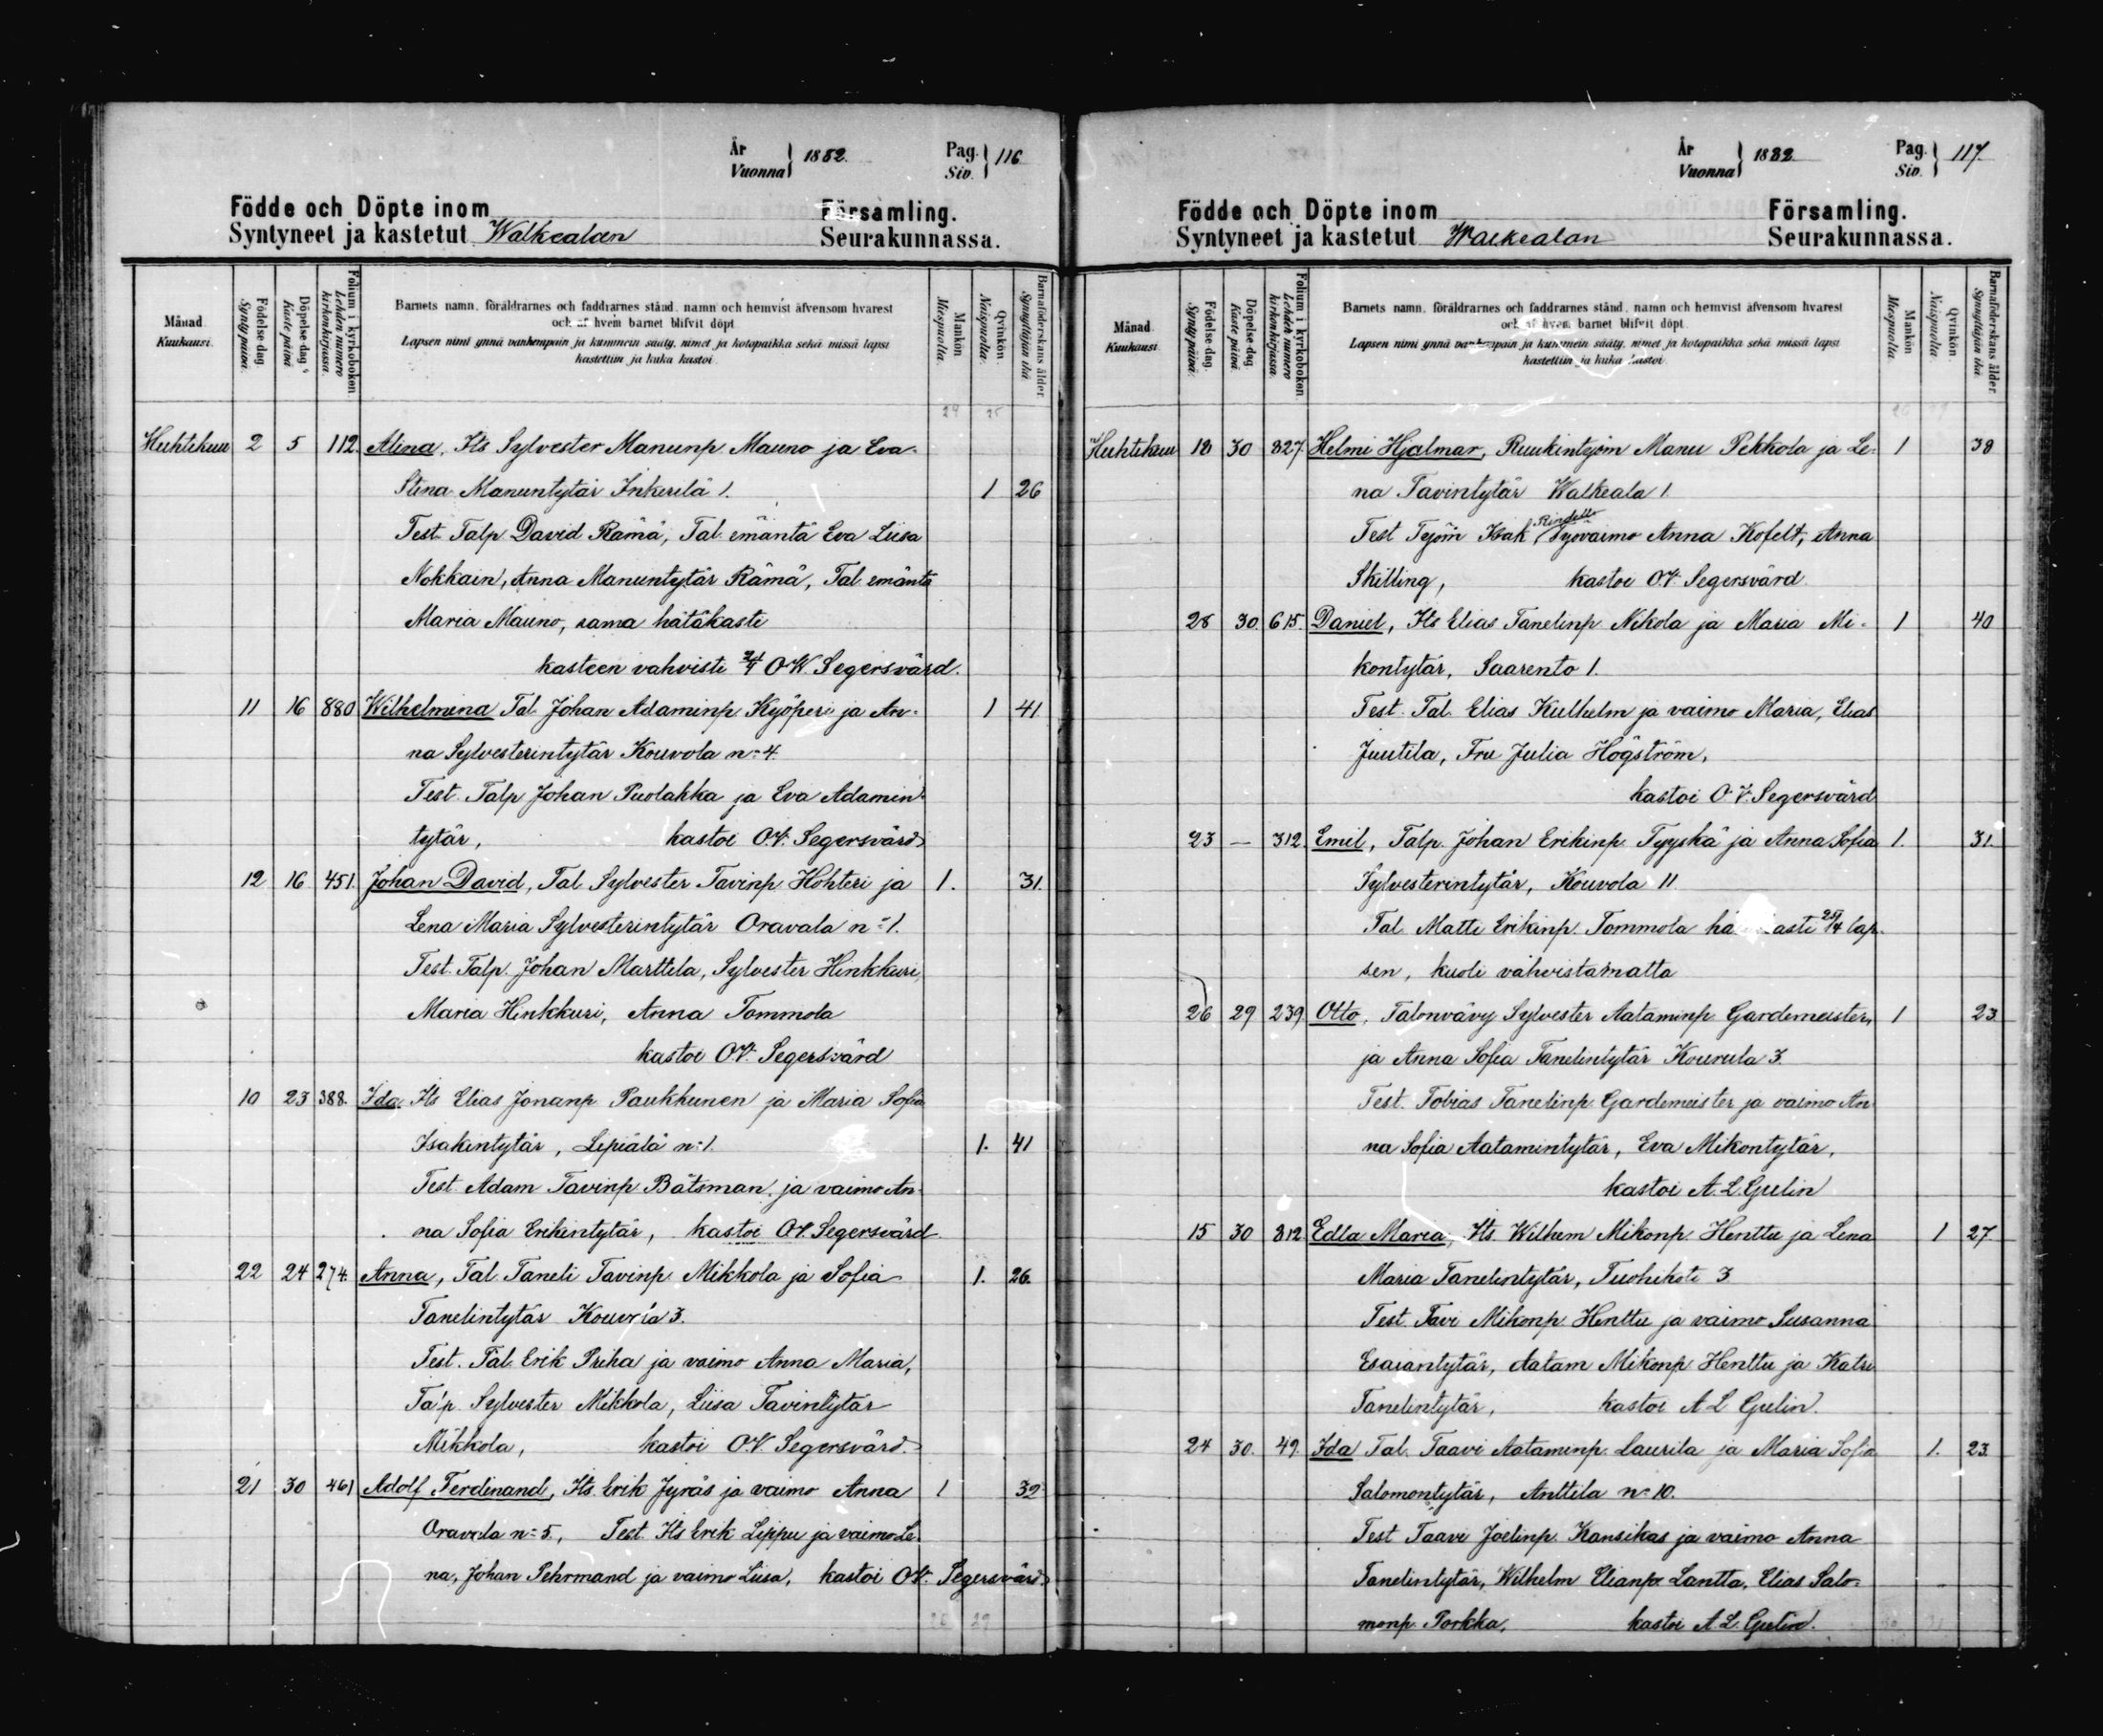 År Vuonna 1882. Pag. Siv. 116
Födde och Döpte inom Församling.
Syntyneet ja kastetut Walkealan Seurakunnassa.
Månad. Kuukausi.
Födelse dag. Synty päivä.
Döpelse dag. Kaste päivä
Folium i kyrkoboken. Lehden numero kirkonkirjassa.
Barnets namn, föräldrarnes och faddrarnes stånd, namn och hemvist äfvensom hvarest
och af hvem barnet blifvit döpt.
Lapsen nimi ynnä vanhempain ja kummein sääty, nimet ja kotopaikka sekä missä lapsi
kastettiin ja kuka kastoi.
Mankön Miespuolta.
Qvinkön. Naispuolta.
Barnaföderskans ålder. Synnyttäjän ikä.
24 25
Huhtikuu 2 5 112. Alina, Its Sylvester Manunp. Mauno ja Eva
Stina Manuntytär Inkerilä 1. 1 26
Test. Talp David Rämä, Tal. emäntä Eva Liisa
Nokkain, Anna Manuntytär Rämä, Tal emäntä
Maria Mauno, sama hätäkasti
kasteen vahvisti O W. Segersvärd.
11 16 880 Wilhelmina Tal. Johan Adaminp. Kyöperi ja An-
na Sylvesterintytär Kouvola n:4.
Test. Talp Johan Puolakka ja Eva Adamin-
tytär, kastoi O.V. Segersvärd
12 16 451. Johan David, Tal. Sylvester Tavinp. Hohteri ja 1. 31.
Lena Maria Sylvesterintytär Oravala n:1.
Test. Talp. Johan Marttila, Sylvester Hinkkuri,
Maria Hinkkuri, Anna Tommola
kastoi O.V. Segersvärd
10 23 388. Ida. Its Elias Jonanp. Paukkunen ja Maria Sofia
Isakintytär, Lepiälä n:1. 1. 41
Test. Adam Tavinp. Båtsman, ja vaimo An-
na Sofia Erikintytär, kastoi O.V. Segersvärd
22 24 274. Anna, Tal. Taneli Tavinp. Mikkola ja Sofia 1. 26.
Tanelintytär 3.
Test. Tal. Erik Priha ja vaimo Anna Maria,
Talp. Sylvester Mikkola, Liisa Tavintytär
Mikkola, kastoi O.V. Segersvärd.
21 30 461 Adolf Ferdinand, Its. Erik Jyräs ja vaimo Anna 1 32
Oravala n:5., Test. Its Erik Lippu ja vaimo Le-
na, Johan Pehrmand ja vaimo Liisa, kastoi O.V. Segersvärd
År Vuonna 1882. Pag. Siv. 117.
Födde och Döpte inom Församling.
Syntyneet ja kastetut Walkealan Seurakunnassa.
Månad. Kuukausi.
Födelse dag. Synty päivä.
Döpelse dag. Kaste päivä.
Folium i kyrkoboken. Lehden numero kirkonkirjassa.
Barnets namn, föräldrarnes och faddrarnes stånd, namn och hemvist äfvensom hvarest
och af hvem barnet blifvit döpt.
Lapsen nimi ynnä vanhempain ja kummein sääty, nimet ja kotopaikka sekä missä lapsi
kastettiin ja kuka kastoi.
Mankön Miespuolta.
Qvinkön. Naispuolta.
Barnaföderskans ålder. Synnyttäjän ikä.
Huhtikuu 18 30 827. Helmi Hjalmar, Ruukintyöm Manu Pekkola ja Le- 1 38
na Tavintytär Walkeala 1.
Test Työm Isak Rindell, Työvaimo Anna Kofelt, Anna
Skilling, kastoi O.V. Segersvärd.
28 30. 615. Daniel, Its Elias Tanelinp. Nikola ja Maria Mi- 1 40
kontytär, Saarento 1.
Test. Tal. Elias Kulhelm ja vaimo Maria, Elias
Juutila, Fru Julia Högström,
kastoi O.V. Segersvärd
23 — 312. Emil, Talp. Johan Erikinp. Tyyskä ja Anna Sofia 1. 31.
Sylvesterintytär, Kouvola 11
Tal. Matti Erikinp. Tommola lap-
sen, kuoli vahvistamatta
26 29 239. Otto, Talonvävy Sylvester Aataminp. Gardemeister, 1 23
ja Anna Sofia Tanelintytär 3
Test. Tobias Tanelinp. Gardemeister ja vaimo An
na Sofia Aatamintytär, Eva Mikontytär,
kastoi A. L. Gulin
15 30 812. Edla Maria, Its. Wilhem Mikonp. Henttu ja Lena 1 27
Maria Tanelintytär, Tuohikoti 3
Test. Tavi Mikonp. Henttu ja vaimo Susanna
Esaiantytär, Aatam Mikonp. Henttu ja Katri
Tanelintytär, kastoi A L Gulin.
24 30. 49. Ida Tal. Taavi Aataminp. Laurila ja Maria Sofia 1. 23.
Salomontytär, Anttila n:10.
Test Taavi Joelinp. Kansikas ja vaimo Anna
Tanelintytär, Wilhelm Elianp. Lantta, Elias Salo-
monp. Porkka, kastoi A. L. Gulin.